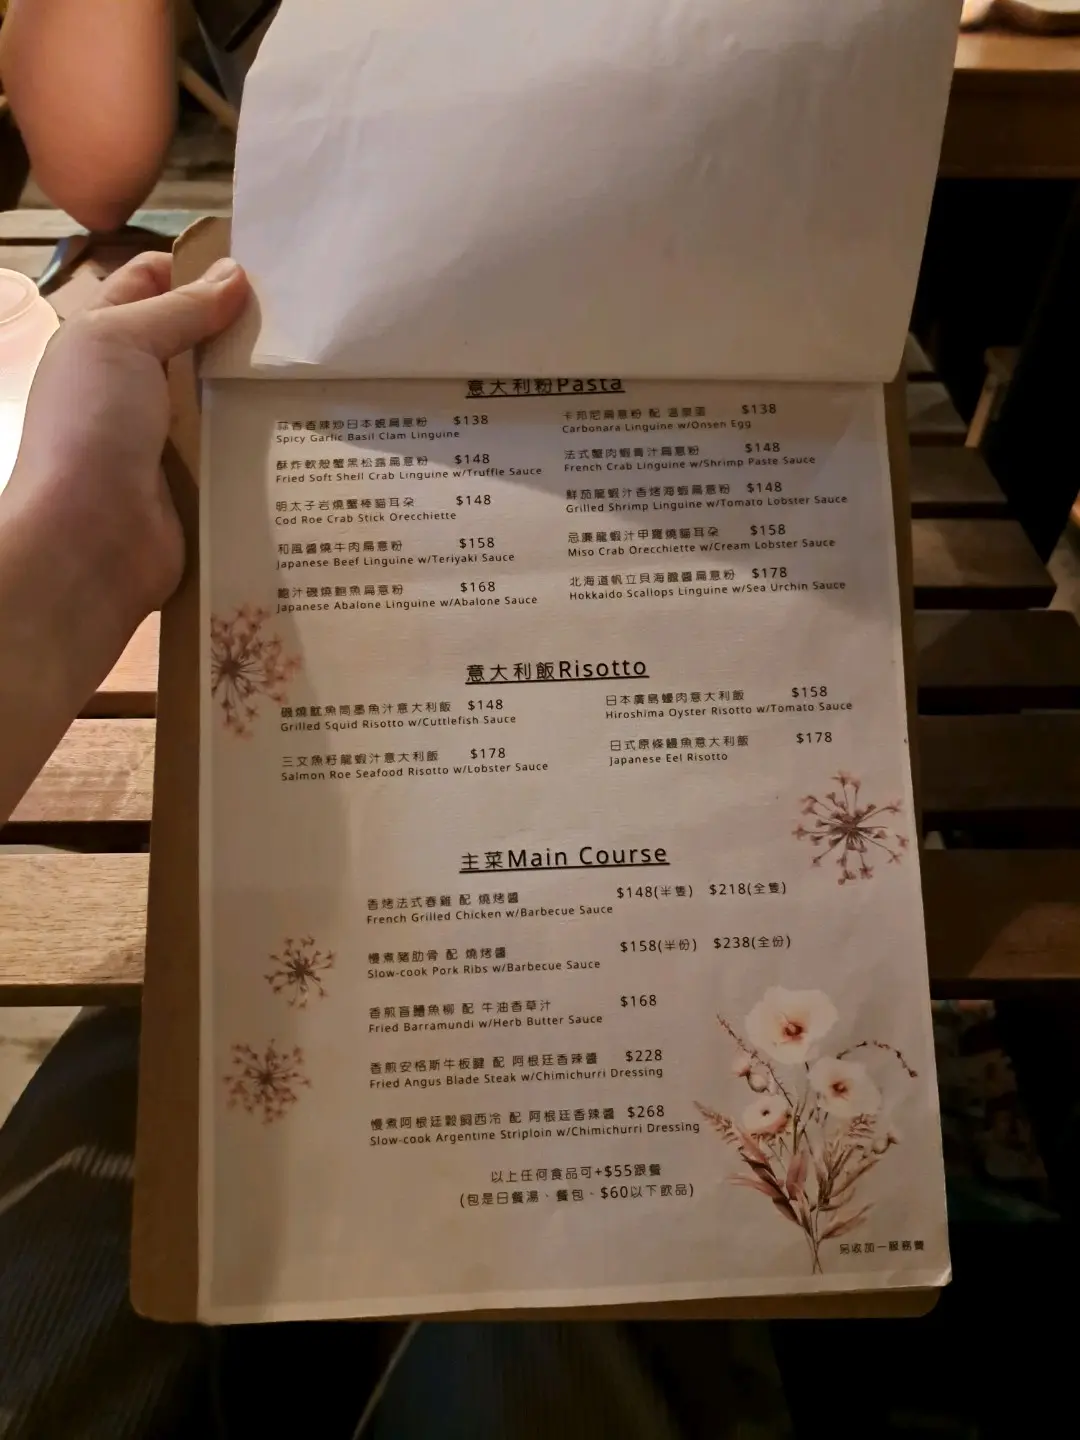 意大利粉Pasta
蒜香香辣炒日本蜆扁意粉 $138
Spicy Garlic Basil Clam Linguine
卡邦尼扁意粉 配 溫泉蛋 $138
Carbonara Linguine w/Onsen Egg
酥炸軟殼蟹黑松露扁意粉 $148
Fried Soft Shell Crab Linguine w/Truffle Sauce
法式蟹肉蝦膏汁扁意粉 $148
French Crab Linguine w/Shrimp Paste Sauce
明太子岩燒蟹棒貓耳朵 $148
Cod Roe Crab Stick Orecchiette
鮮茄龍蝦汁香烤海蝦扁意粉 $148
Grilled Shrimp Linguine w/Tomato Lobster Sauce
和風醬燒牛肉扁意粉 $158
Japanese Beef Linguine w/Teriyaki Sauce
忌廉龍蝦汁甲羅燒貓耳朵 $158
Miso Crab Orecchiette w/Cream Lobster Sauce
鮑汁磯燒鮑魚扁意粉 $168
Japanese Abalone Linguine w/Abalone Sauce
北海道帆立貝海膽醬扁意粉 $178
Hokkaido Scallops Linguine w/Sea Urchin Sauce
意大利飯Risotto
磯燒魷魚筒墨魚汁意大利飯 $148
Grilled Squid Risotto w/Cuttlefish Sauce
日本廣島蠔肉意大利飯 $158
Hiroshima Oyster Risotto w/Tomato Sauce
三文魚籽龍蝦汁意大利飯 $178
Salmon Roe Seafood Risotto w/Lobster Sauce
日式原條鰻魚意大利飯 $178
Japanese Eel Risotto
主菜Main Course
香烤法式春雞 配 燒烤醬 $148(半隻) $218(全隻)
French Grilled Chicken w/Barbecue Sauce
慢煮豬肋骨 配 燒烤醬 $158(半份) $238(全份)
Slow-cook Pork Ribs w/Barbecue Sauce
香煎盲鰽魚柳 配 牛油香草汁 $168
Fried Barramundi w/Herb Butter Sauce
香煎安格斯牛板腱 配 阿根廷香辣醬 $228
Fried Angus Blade Steak w/Chimichurri Dressing
慢煮阿根廷穀飼西冷 配 阿根廷香辣醬 $268
Slow-cook Argentine Striploin w/Chimichurri Dressing
以上任何食品可+$55跟餐
(包是日餐湯、餐包、$60以下飲品)
另收加一服務費